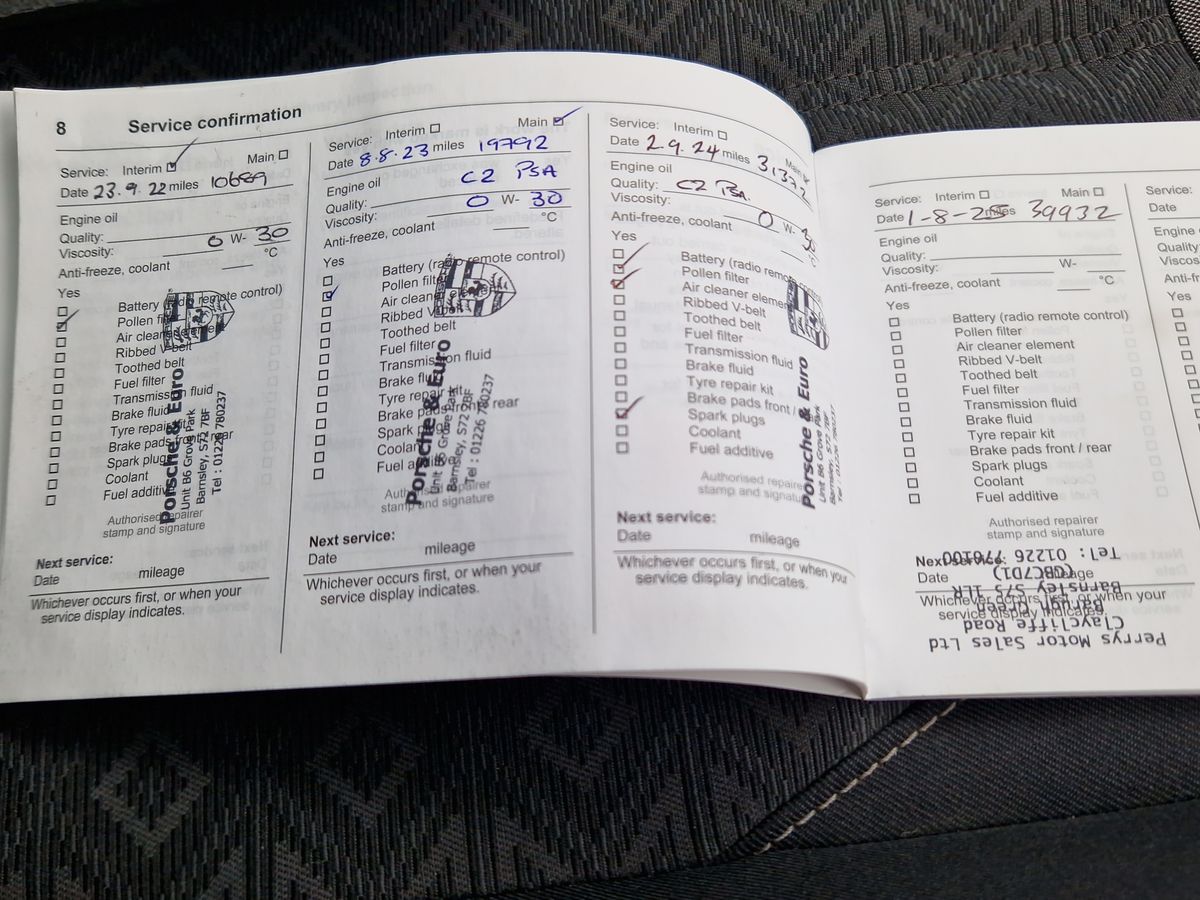 8 Service confirmation
Service: Interim Main
Date 23.9.22 miles 10689
Engine oil
Quality:
Viscosity: 0 W- 30
Anti-freeze, coolant °C
Yes
Battery (radio remote control)
Pollen filter
Air cleaner element
Ribbed V-belt
Toothed belt
Fuel filter
Transmission fluid
Brake fluid
Tyre repair kit
Brake pads front / rear
Spark plugs
Coolant
Fuel additive
Authorised repairer
stamp and signature
Porsche & Euro
Unit B6 Grove Park
Barnsley, S72 7BF
Tel : 01226 780237
Next service:
Date mileage
Whichever occurs first, or when your
service display indicates.
Service: Interim Main
Date 8.8.23 miles 19792
Engine oil
Quality: C2 PSA
Viscosity: 0 W- 30
Anti-freeze, coolant °C
Yes
Battery (radio remote control)
Pollen filter
Air cleaner element
Ribbed V-belt
Toothed belt
Fuel filter
Transmission fluid
Brake fluid
Tyre repair kit
Brake pads front / rear
Spark plugs
Coolant
Fuel additive
Authorised repairer
stamp and signature
Porsche & Euro
Unit B6 Grove Park
Barnsley, S72 7BF
Tel : 01226 780237
Next service:
Date mileage
Whichever occurs first, or when your
service display indicates.
Service: Interim Main
Date 2.9.24 miles 31372
Engine oil
Quality: C2 PSA.
Viscosity: 0 W- 30
Anti-freeze, coolant °C
Yes
Battery (radio remote
Pollen filter
Air cleaner element
Ribbed V-belt
Toothed belt
Fuel filter
Transmission fluid
Brake fluid
Tyre repair kit
Brake pads front /
Spark plugs
Coolant
Fuel additive
Authorised repairer
stamp and signature
Porsche & Euro
Unit B6 Grove Park
Barnsley, S72 7BF
Tel : 01226 780237
Next service:
Date mileage
Whichever occurs first, or when your
service display indicates.
Service: Interim Main
Date 1-8-25 miles 39932
Engine oil
Quality:
Viscosity: W-
Anti-freeze, coolant °C
Yes
Battery (radio remote control)
Pollen filter
Air cleaner element
Ribbed V-belt
Toothed belt
Fuel filter
Transmission fluid
Brake fluid
Tyre repair kit
Brake pads front / rear
Spark plugs
Coolant
Fuel additive
Authorised repairer
stamp and signature
Next service:
Date mileage
Whichever occurs first, or when your
service display indicates.
Perrys Motor Sales Ltd
Claycliffe Road
Barugh Green
Barnsley S75 1LR
(GBC7D1)
Tel: 01226 776100
Service:
Date
Engine
Quality
Viscos
Anti-f
Yes